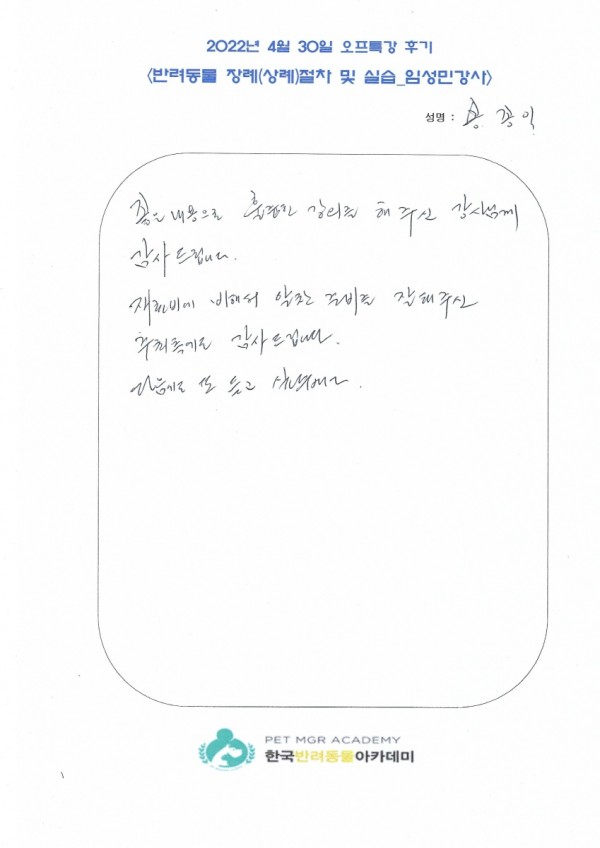 2022년 4월 30일 오프특강 후기
<반려동물 장례(상례)절차 및 실습_임성민강사>
성명 :
좋은 내용으로 훌륭한 강의를 해 주신 강사님께
감사드립니다.
준비를 잘해주신
감사드립니다.
다음에도 또 듣고
PET MGR ACADEMY
한국반려동물아카데미